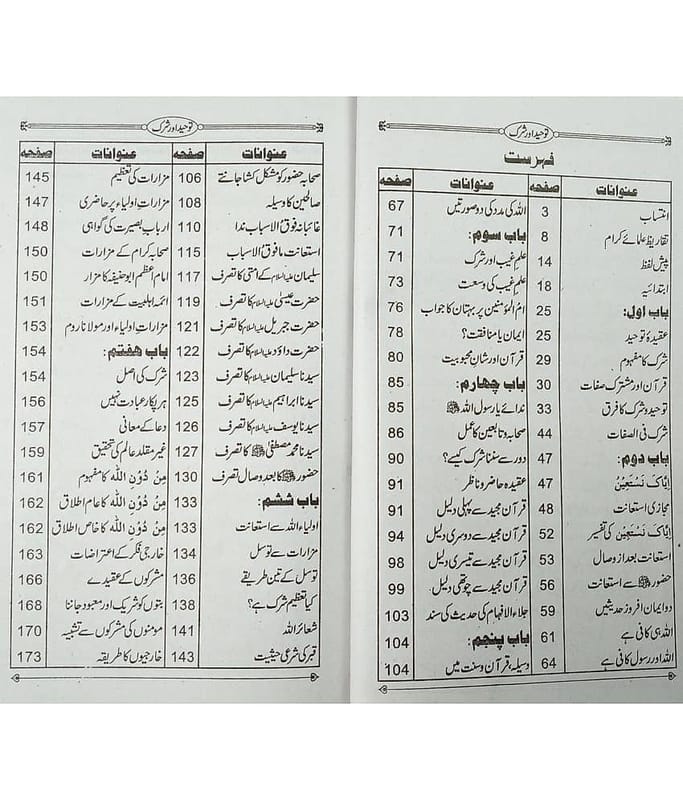 توحید اور شرک
فہرست
عنوانات صفحہ
انتساب 3
تقاریظ علمائے کرام 8
پیش لفظ 14
ابتدائیہ 18
باب اول: 25
عقیدۂ توحید 25
شرک کا مفہوم 29
قرآن اور مشترک صفات 30
توحید و شرک کا فرق 33
شرک فی الصفات 44
باب دوم: 47
اِیَّاکَ نَسْتَعِیْنُ 47
مجازی استعانت 48
اِیَّاکَ نَسْتَعِیْنُ کی تفسیر 52
استعانت بعد از وصال 53
حضور ﷺ سے استعانت 56
دو ایمان افروز حدیثیں 59
اللہ ہی کافی ہے 61
اللہ اور رسول کافی ہے 64
عنوانات صفحہ
اللہ کی مدد کی دو صورتیں 67
باب سوم: 71
علم غیب اور شرک 71
علم غیب کی وسعت 73
ام المؤمنین پر بہتان کا جواب 76
ایمان یا منافقت؟ 78
قرآن اور شانِ محبوبیت 80
باب چہارم: 85
ندائے یا رسول اللہ ﷺ 85
صحابہ و تابعین کا عمل 86
دور سے سننا شرک کیسے؟ 90
عقیدہ حاضر و ناظر 91
قرآن مجید سے پہلی دلیل 91
قرآن مجید سے دوسری دلیل 94
قرآن مجید سے تیسری دلیل 98
قرآن مجید سے چوتھی دلیل 99
جلاء الافہام کی حدیث کی سند 103
باب پنجم: 104
وسیلہ، قرآن و سنت میں 104
توحید اور شرک
عنوانات صفحہ
صحابہ حضور کو مشکل کشا جانتے 106
صالحین کا وسیلہ 108
غائبانہ فوق الاسباب ندا 110
استعانت مافوق الاسباب 115
سلیمان علیہ السلام کے امتی کا تصرف 117
حضرت عیسیٰ علیہ السلام کا تصرف 119
حضرت جبریل علیہ السلام کا تصرف 121
حضرت داؤد علیہ السلام کا تصرف 122
سیدنا سلیمان علیہ السلام کا تصرف 123
سیدنا ابراہیم علیہ السلام کا تصرف 125
سیدنا یوسف علیہ السلام کا تصرف 126
سیدنا محمد مصطفیٰ ﷺ کا تصرف 127
حضور ﷺ کا بعد وصال تصرف 130
باب ششم: 133
اولیاء اللہ سے استعانت 133
مزارات سے توسل 134
توسل کے تین طریقے 136
کیا تعظیم شرک ہے؟ 138
شعائر اللہ 141
قبر کی شرعی حیثیت 143
عنوانات صفحہ
مزارات کی تعظیم 145
مزارات اولیاء پر حاضری 147
ارباب بصیرت کی گواہی 148
صحابہ کرام کے مزارات 150
امام اعظم ابو حنیفہ کا مزار 150
ائمہ اہلبیت کے مزارات 151
مزارات اولیاء اور مولانا روم 153
باب ہفتم: 154
شرک کی اصل 154
ہر پکار عبادت نہیں 156
دعا کے معانی 157
غیر مقلد عالم کی تحقیق 159
مِنْ دُوْنِ اللّٰہ کا مفہوم 161
مِنْ دُوْنِ اللّٰہ کا عام اطلاق 162
مِنْ دُوْنِ اللّٰہ کا خاص اطلاق 162
خارجی فکر کے اعتراضات 163
مشرکوں کے عقیدے 166
بتوں کو شریک اور معبود جاننا 168
مومنوں کی مشرکوں سے تشبیہ 170
خارجیوں کا طریقہ 173